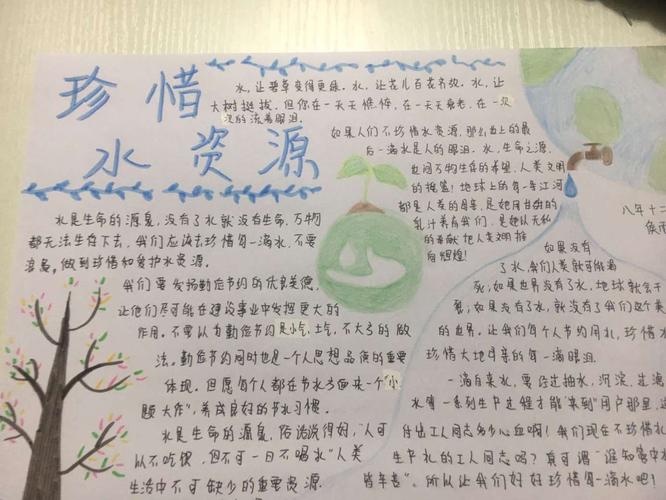 珍惜
水资源
水,让碧草变得更绿。水,让花儿百花齐放。水,让
大树挺拔。但你在一天天憔悴,在一天天衰老,在一次
次的流着眼泪。
如果人们不珍惜水资源,那么世上的最
后一滴水是人的眼泪。水,生命之源,
也同万物生存的希望,人类文明
的摇篮!地球上的每一条江河
都是人类的母亲,是她用甘甜的
乳汁养育我们,是她以无私
的奉献把人类文明推
向辉煌!
八年十二
水是生命的源泉,没有了水就没有生命,万物
都无法生存下去,我们应该去珍惜每一滴水,不要
浪费。做到珍惜和爱护水资源。
我们要发扬勤俭节约的优良美德,
让他们尽可能在建设事业中发挥更大的
作用。不要认为勤俭节约是小气,土气,不大方的做
法。勤俭节约同时也是一个人思想品质的重要
体现。但愿每个人都在节水方面来一个“小
题大作”,养成良好的节水习惯。
水是生命的源泉,俗话说得好,“人可
以不吃饭,但不可一日不喝水”人类
生活中不可缺少的重要资源
如果没有
了水,我们人类就可能渴
死;如果世界没有了水,地球就会干
;如果是没有了水,就没有了我们这个美
的世界。让我们每个人节约用水,珍惜水
珍惜大地母亲的每一滴眼泪。
一滴自来水,要经过抽水,沉淀,过滤
水等一系列生产过程才能“来到”用户那里,这
付出工人同志多少心血啊!我们现在不珍惜水
生产水的工人同志吗?真可谓“谁知盘中
皆辛苦”。所以让我们好好珍惜每一滴水吧!